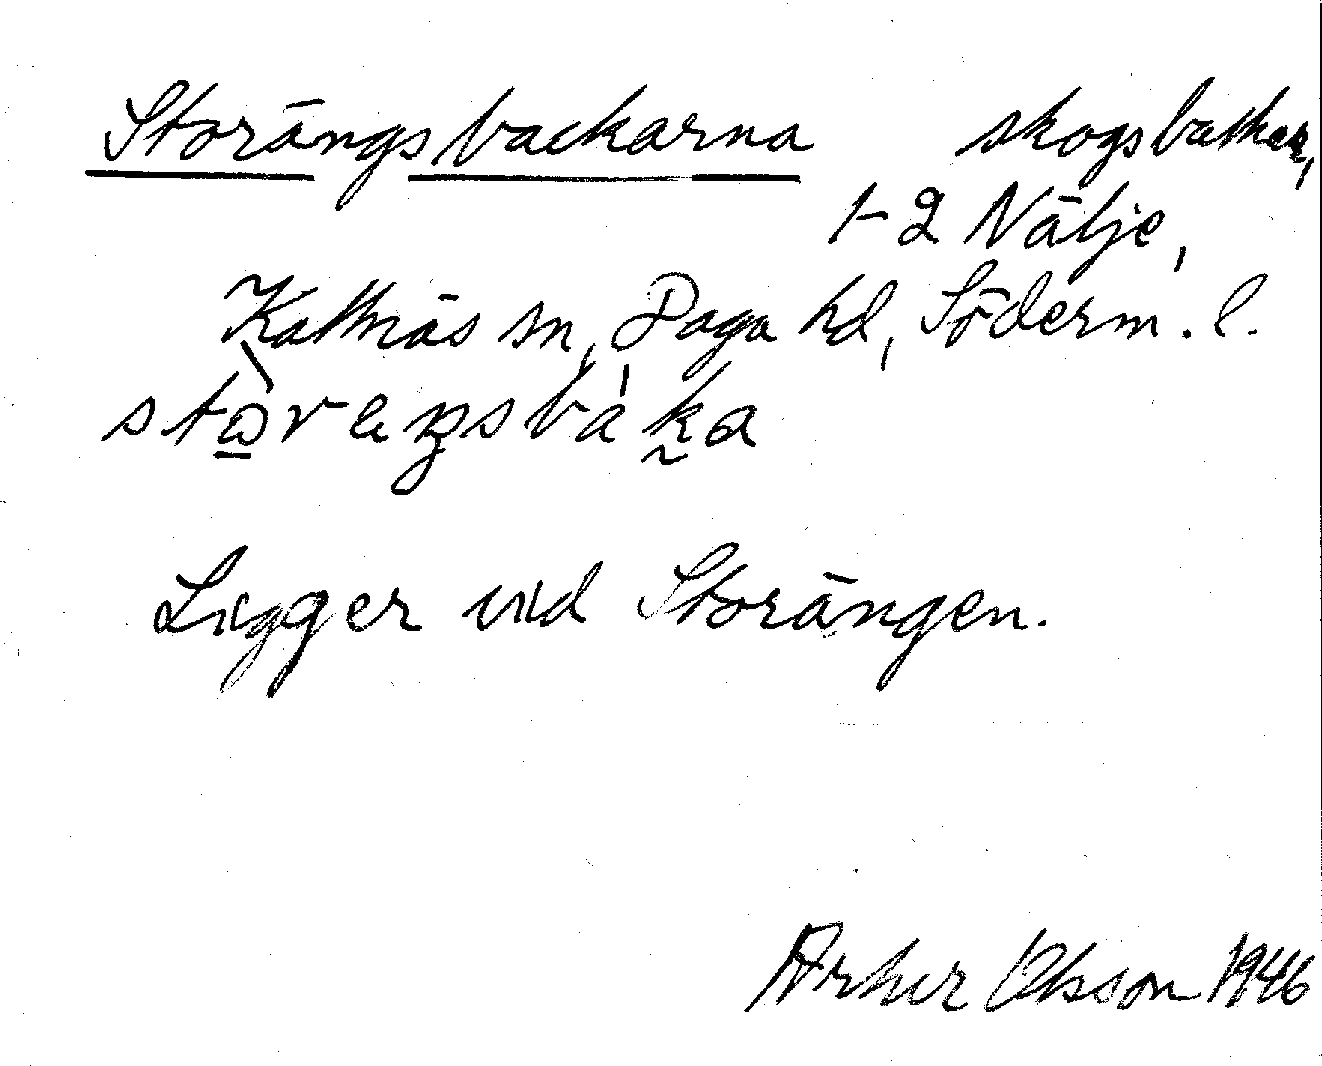 Storängsbackarna skogsbackar,
1-2 Nälje,
Kattnäs sn, Daga hd, Söderm. l.
Ligger vid Storängen.
Arthur Olsson 1946